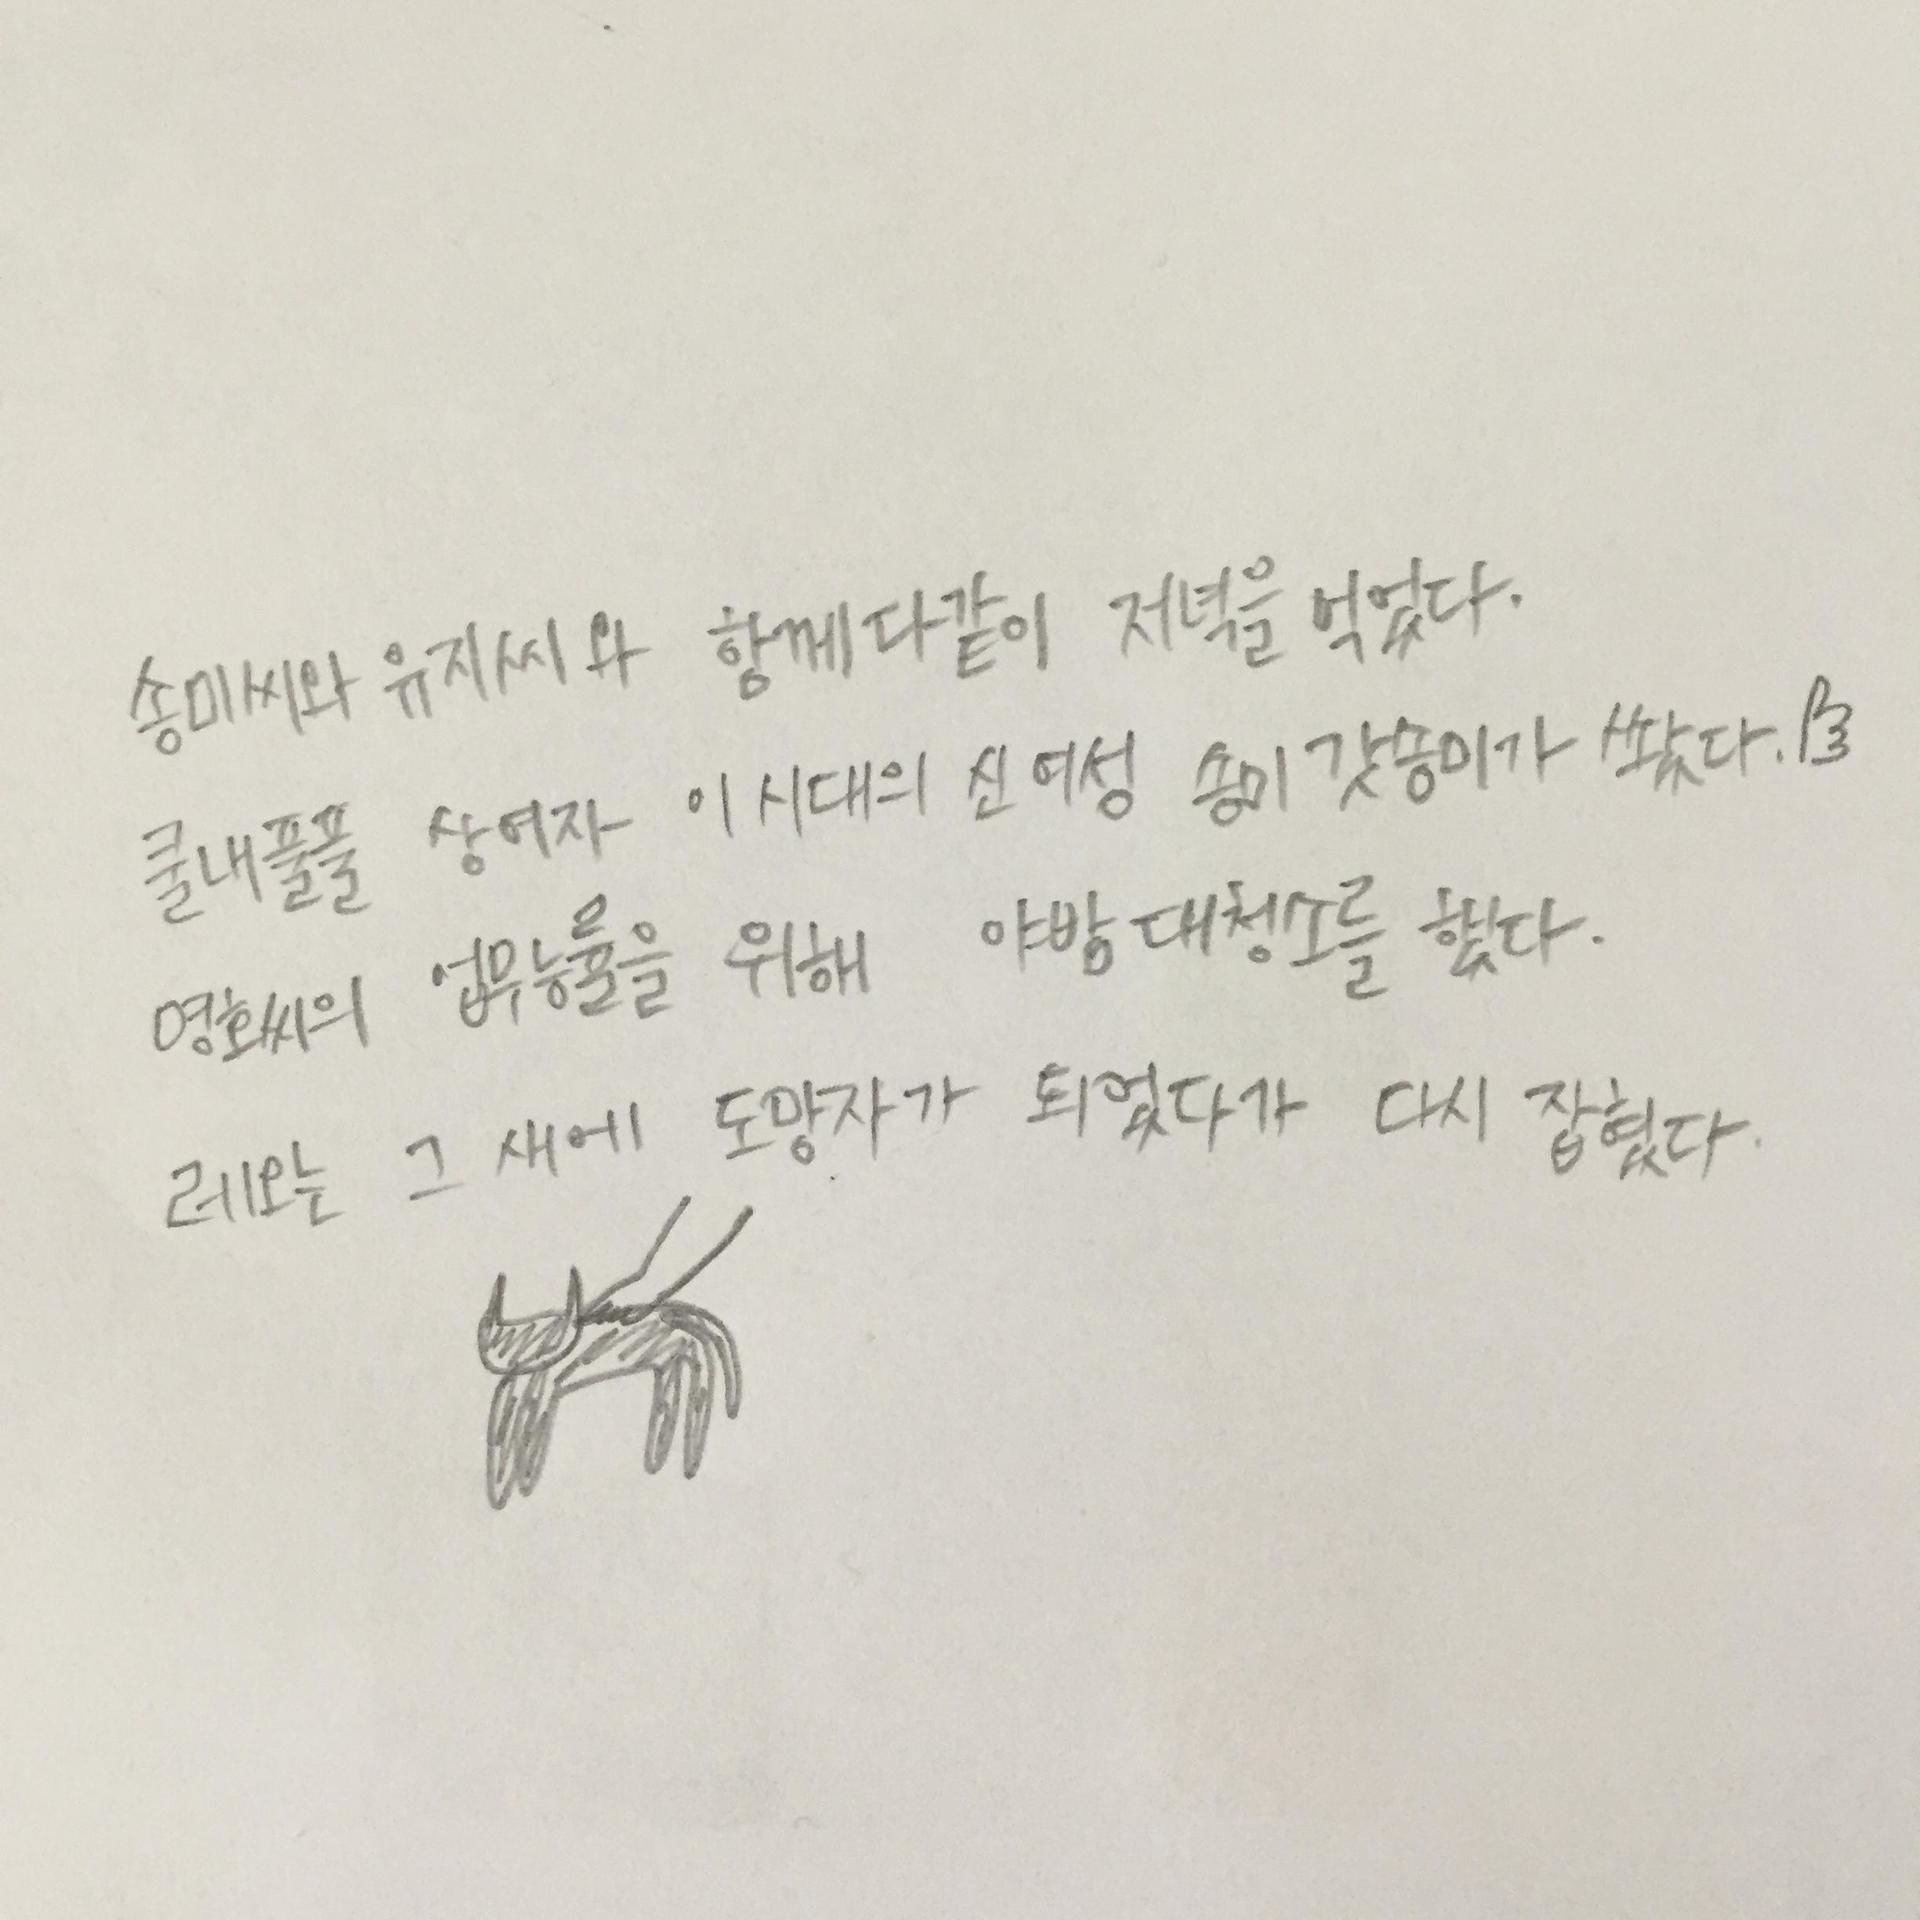 송미씨와 유지씨와 함께 다같이 저녁을 먹었다.
쿨내풀풀 상여자 이 시대의 신여성 송미 갓송미가 쐈다.
영화씨의 업무능률을 위해 야밤 대청소를 했다.
그 새에 도망자가 되었다가 다시 잡혔다.